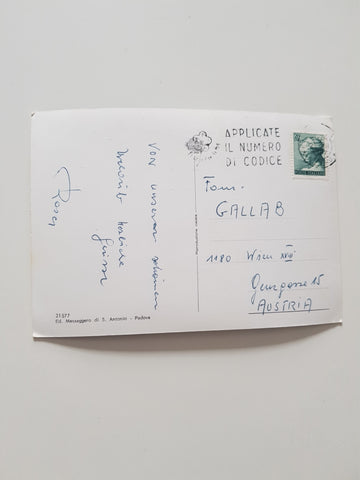 APPLICATE
IL NUMERO
DI CODICE
Von unserer schönen
herzliche
Grüsse
Fam.
GALLAB
1180 Wien XVIII
15
AUSTRIA
21577
Ed. Messaggero di S. Antonio - Padova